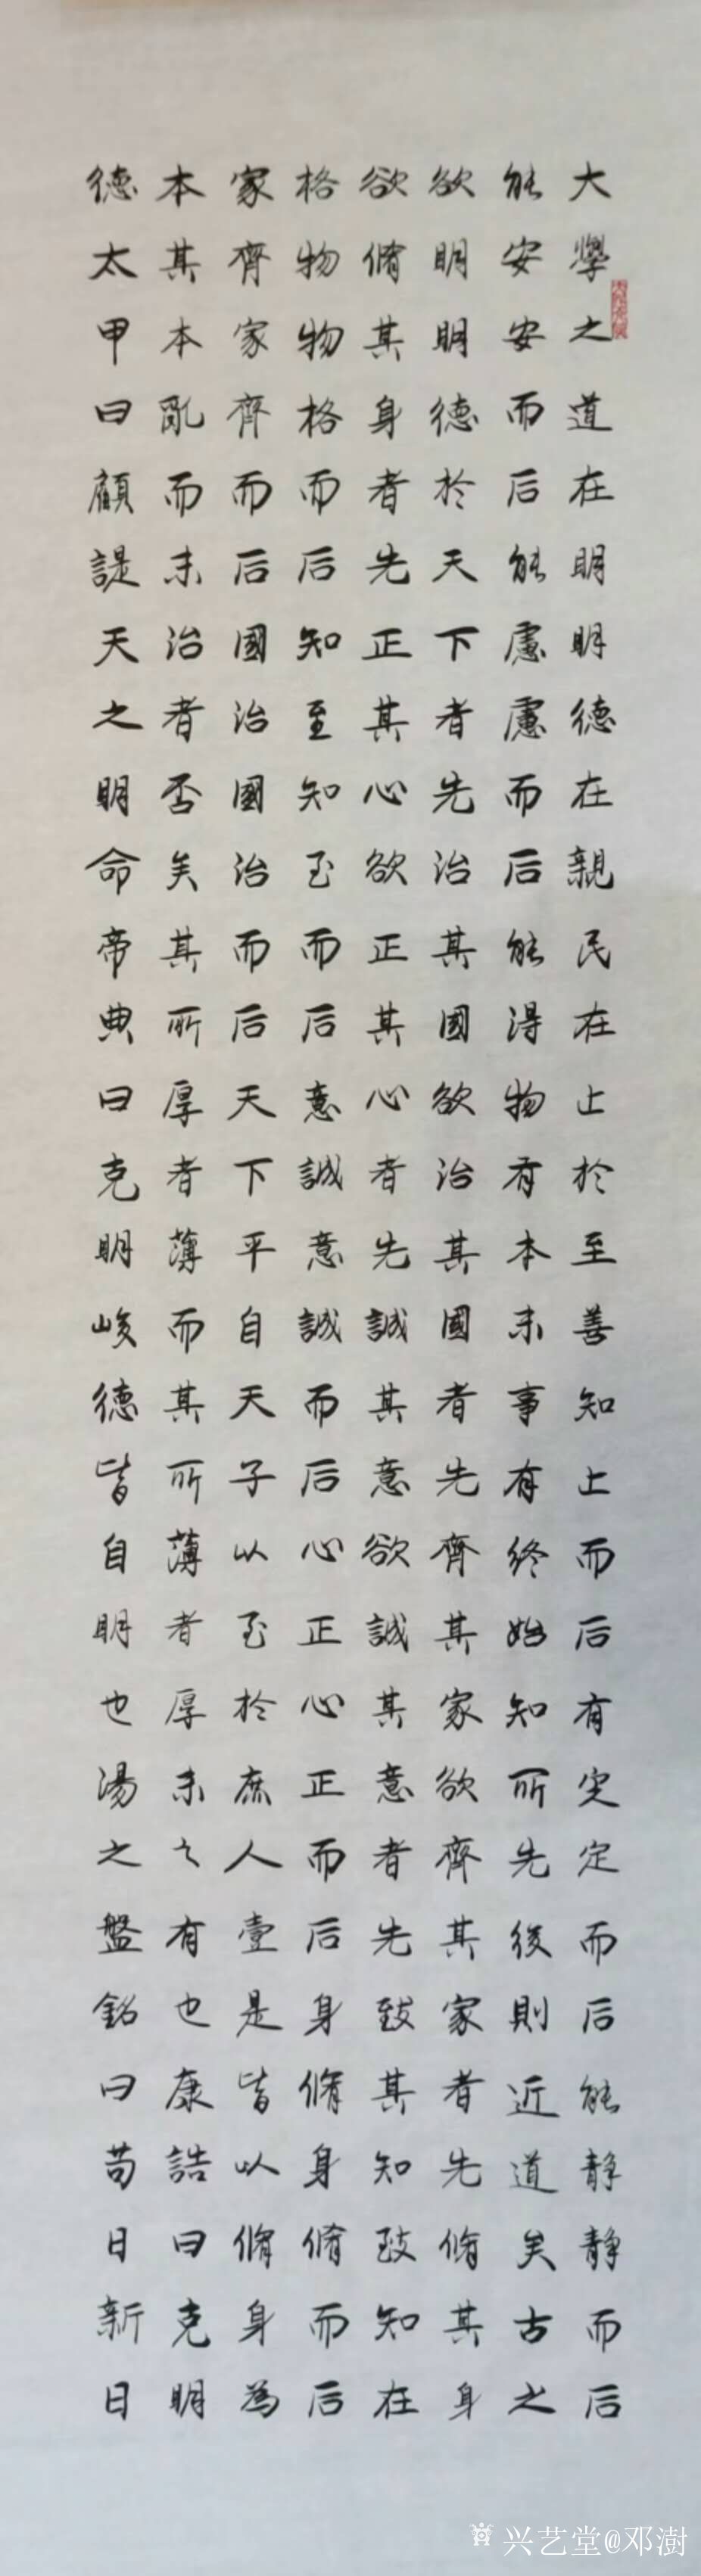 大學之道在明明德在親民在止於至善知止而后有定定而后能靜靜而后
能安安而后能慮慮而后能得物有本末事有終始知所先後則近道矣古之
欲明明德於天下者先治其國欲治其國者先齊其家欲齊其家者先脩其身
欲脩其身者先正其心欲正其心者先誠其意欲誠其意者先致其知致知在
格物物格而后知至知至而后意誠意誠而后心正心正而后身脩身脩而后
家齊家齊而后國治國治而后天下平自天子以至於庶人壹是皆以脩身為
本其本亂而末治者否矣其所厚者薄而其所薄者厚未之有也康誥曰克明
德太甲曰顧諟天之明命帝典曰克明峻德皆自明也湯之盤銘曰苟日新日
兴艺堂@邓澍